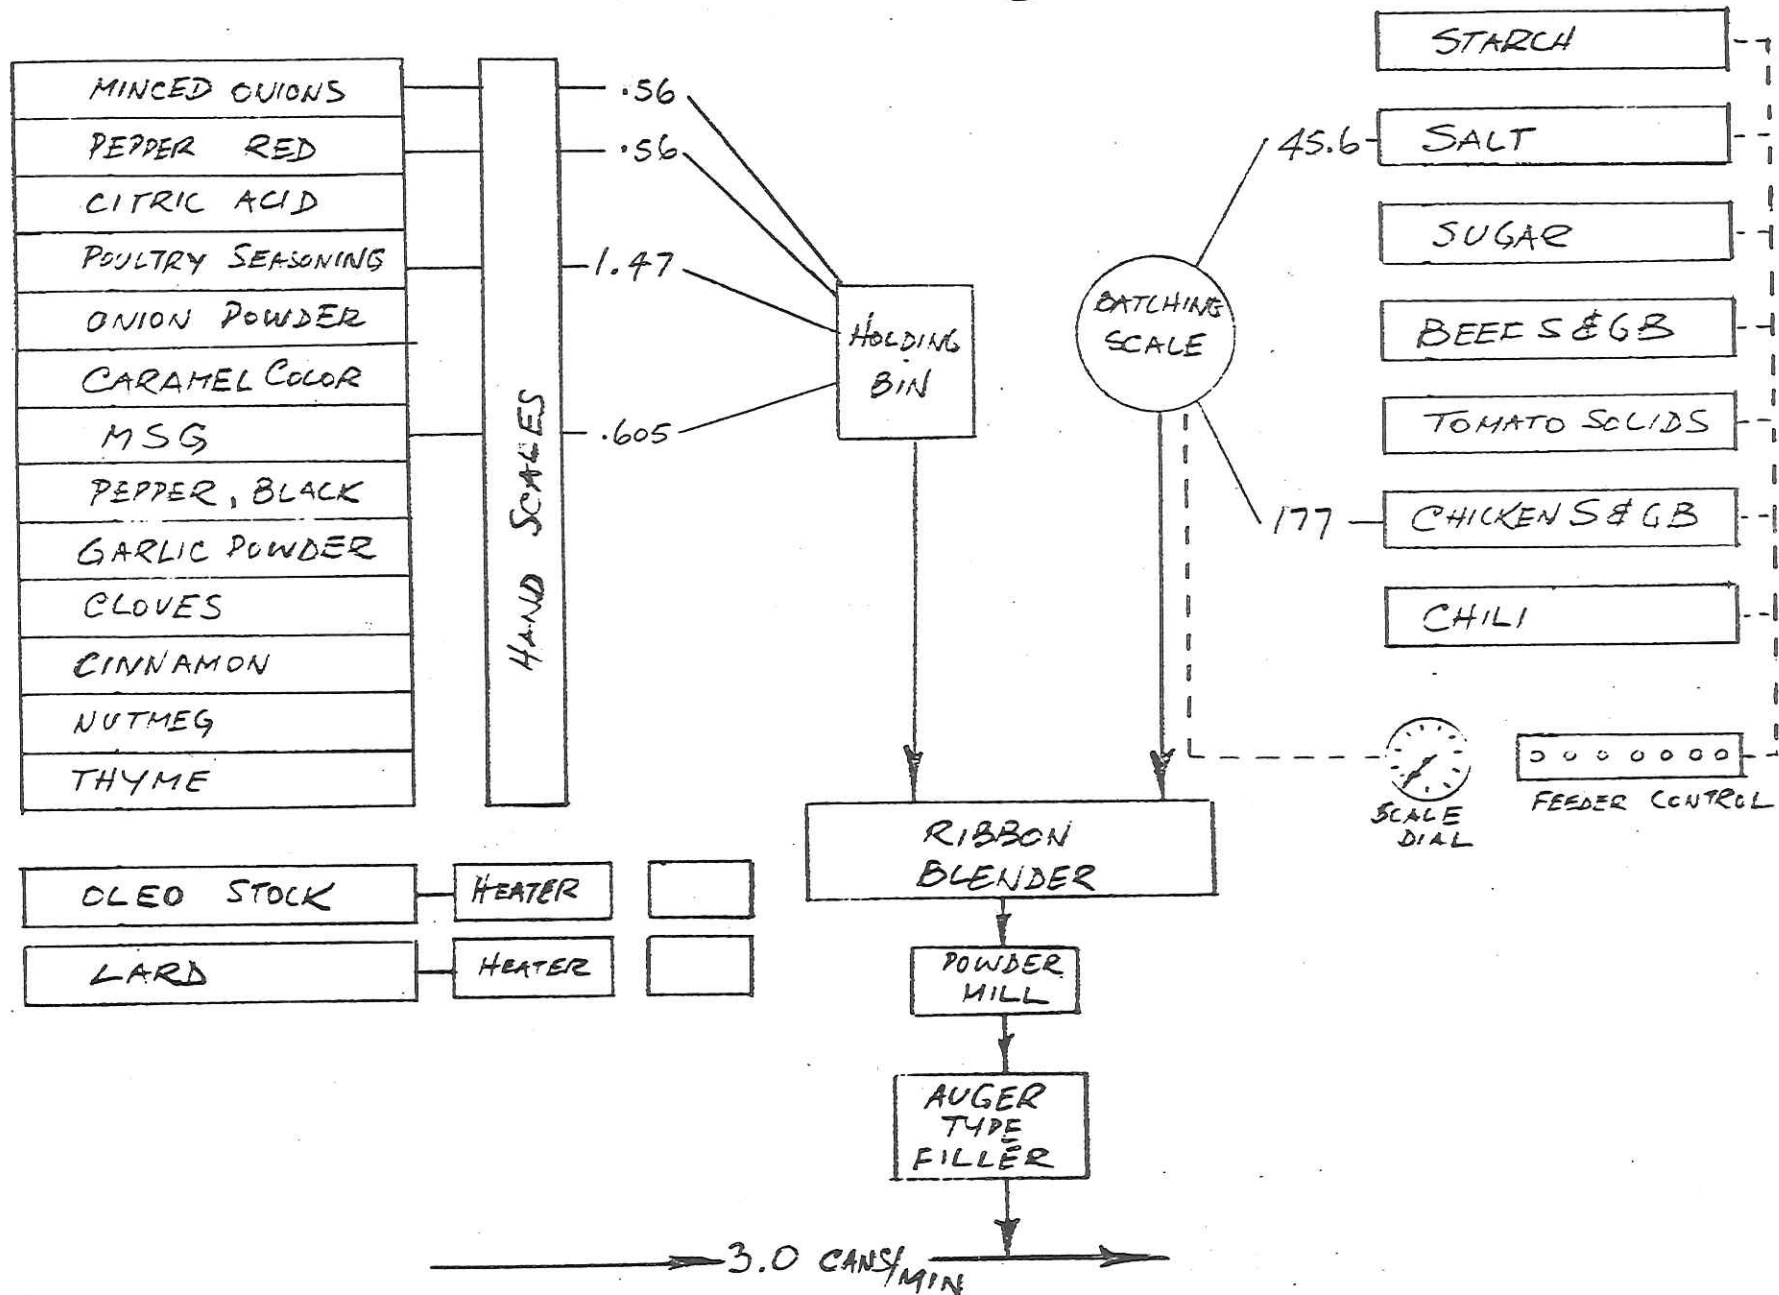 MINCED ONIONS
PEPPER RED
CITRIC ACID
POULTRY SEASONING
ONION POWDER
CARAMEL COLOR
MSG
PEPPER, BLACK
GARLIC POWDER
CLOVES
CINNAMON
NUTMEG
THYME
HAND SCALES
.56
.56
1.47
.605
HOLDING
BIN
BATCHING
SCALE
45.6
177
STARCH
SALT
SUGAR
BEEF S & GB
TOMATO SOLIDS
CHICKEN S & GB
CHILI
SCALE
DIAL
FEEDER CONTROL
OLEO STOCK
HEATER
LARD
HEATER
RIBBON
BLENDER
POWDER
MILL
AUGER
TYPE
FILLER
3.0 CANS/MIN